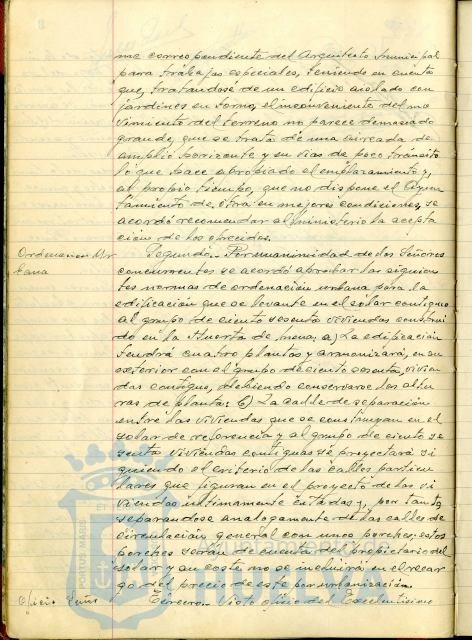 me correspondiente del Arquitecto Municipal
para trabajos especiales, teniendo en cuenta
que, tratandose de un edificio aislado con
jardines en torno, el inconveniente del mo
vimiento del terreno no parece demasiado
grande, que se trata de una aireada de
amplio horizonte y en vias de poco tránsito
lo que hace apropiado el emplazamiento y,
al propio tiempo, que no dispone el Ayun
tamiento de otra en mejores condiciones, se
acordó recomendar al Ministerio la acepta
ción de los ofrecidos.
Ordenacion Ur
bana
Segundo.- Por unanimidad de los Señores
concurrentes se acordó aprobar las siguien
tes normas de ordenación urbana para la
edificación que se levante en el solar contiguo
al grupo de ciento sesenta viviendas construi
do en la Huerta de Mena: a) La edificación
tendrá cuatro plantas y armonizará, en su
exterior con el grupo de ciento sesenta vivien
das contiguo, debiendo conservarse las altu
ras de planta: b) La calle de separación
entre las viviendas que se construyan en el
solar de referencia y al grupo de ciento se
senta viviendas contiguas se proyectará si
guiendo el criterio de las calles particu
lares que figuran en el proyecto de las vi
viendas ultimamente citadas y, por tanto,
separandose analogamente de las calles de
circulación general con unos porches; estos
porches serán de cuenta del propietario del
solar y su coste no se incluirá en el recar
go del precio de este por urbanización.
Oficio
Tercero.- Visto oficio del Excelentisimo
PORTUS MARIS
Ayuntamiento
HUELVA